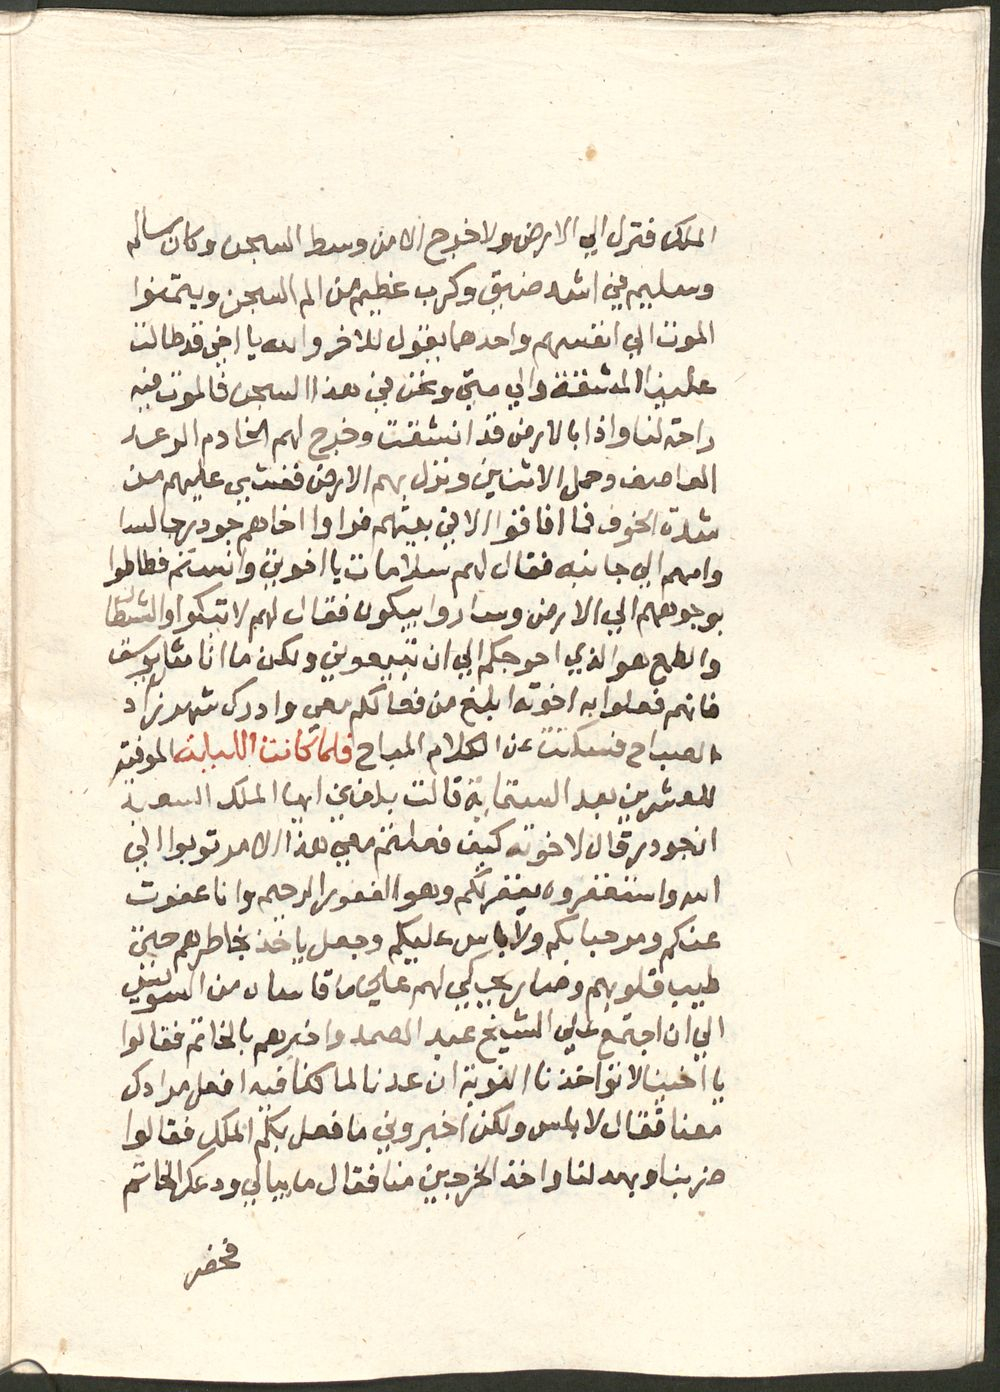 الملك فنزل الي الارض ولا خرج الا من وسط السجن وكان سالم
وسليم في اشد ضيق وكرب عظيم من الم السجن ويتمنوا
الموت الي انفسهم واحدهما يقول للاخر والله يا اخي قد طالت
علينا المشقة والي متي ونحن في هذا السجن فالموت فيه
راحة لنا واذا بالارض قد انشقت وخرج لهم الخادم الرعد
القاصف وحمل الاثنين ونزل بهم الارض فغشي عليهم من
شدة الخوف فما افاقوا الا في بيتهم فراوا اخاهم جودر جالسا
وامهم الي جانبه فقال لهم سلامات يا اخوتي وانستم فطاطوا
بوجوههم الي الارض وصاروا يبكون فقال لهم لا تبكوا والشيطان
والطمع هو الذي احوجكم الي ان تبيعوني ولكن ما انا مثل يوسف
فانهم فعلوا به اخوته ابلغ من فعالكم معي وادرك شهرزاد
الصباح فسكتت عن الكلام المباح فلما كانت الليلة الموفية
للعشرين بعد الستماية قالت بلغني ايها الملك السعيد
ان جودر قال لاخوته كيف فعلتم معي هذا الامر توبوا الي
الله واستغفروه يغفر لكم وهو الغفور الرحيم وانا عفوت
عنكم ومرحبا بكم ولا باس عليكم وجعل ياخذ بخاطرهم حتي
طيب قلوبهم وصار يحكي لهم علي ما قاساه من السويس
الي ان اجتمع علي الشيخ عبد الصمد واخبرهم بالخاتم فقالوا
يا اخينا لا تواخذنا النوبة ان عدنا لما كنا فيه افعل مرادك
معنا فقال لا باس ولكن اخبروني ما فعل بكم الملك فقالوا
ضربنا وبهدلنا واخذ الخرجين منا فقال ما يبالي ودعك الخاتم
فحضر